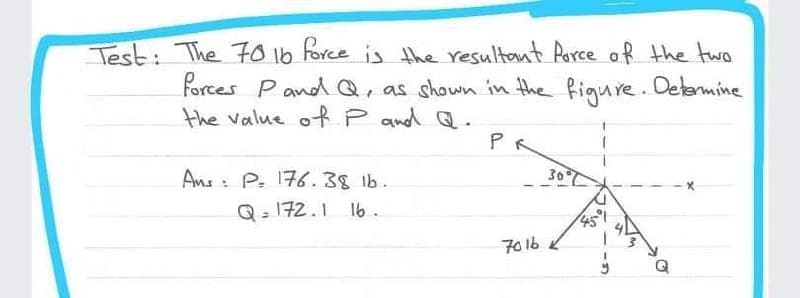 Test: The 70 lb force is the resultant force of the two
forces P and Q, as shown in the figure. Determine
the value of P and Q.
P
Ans: P= 176.38 lb.
30°
x
Q=172.1 lb.
45°
4
3
70 lb
y
Q